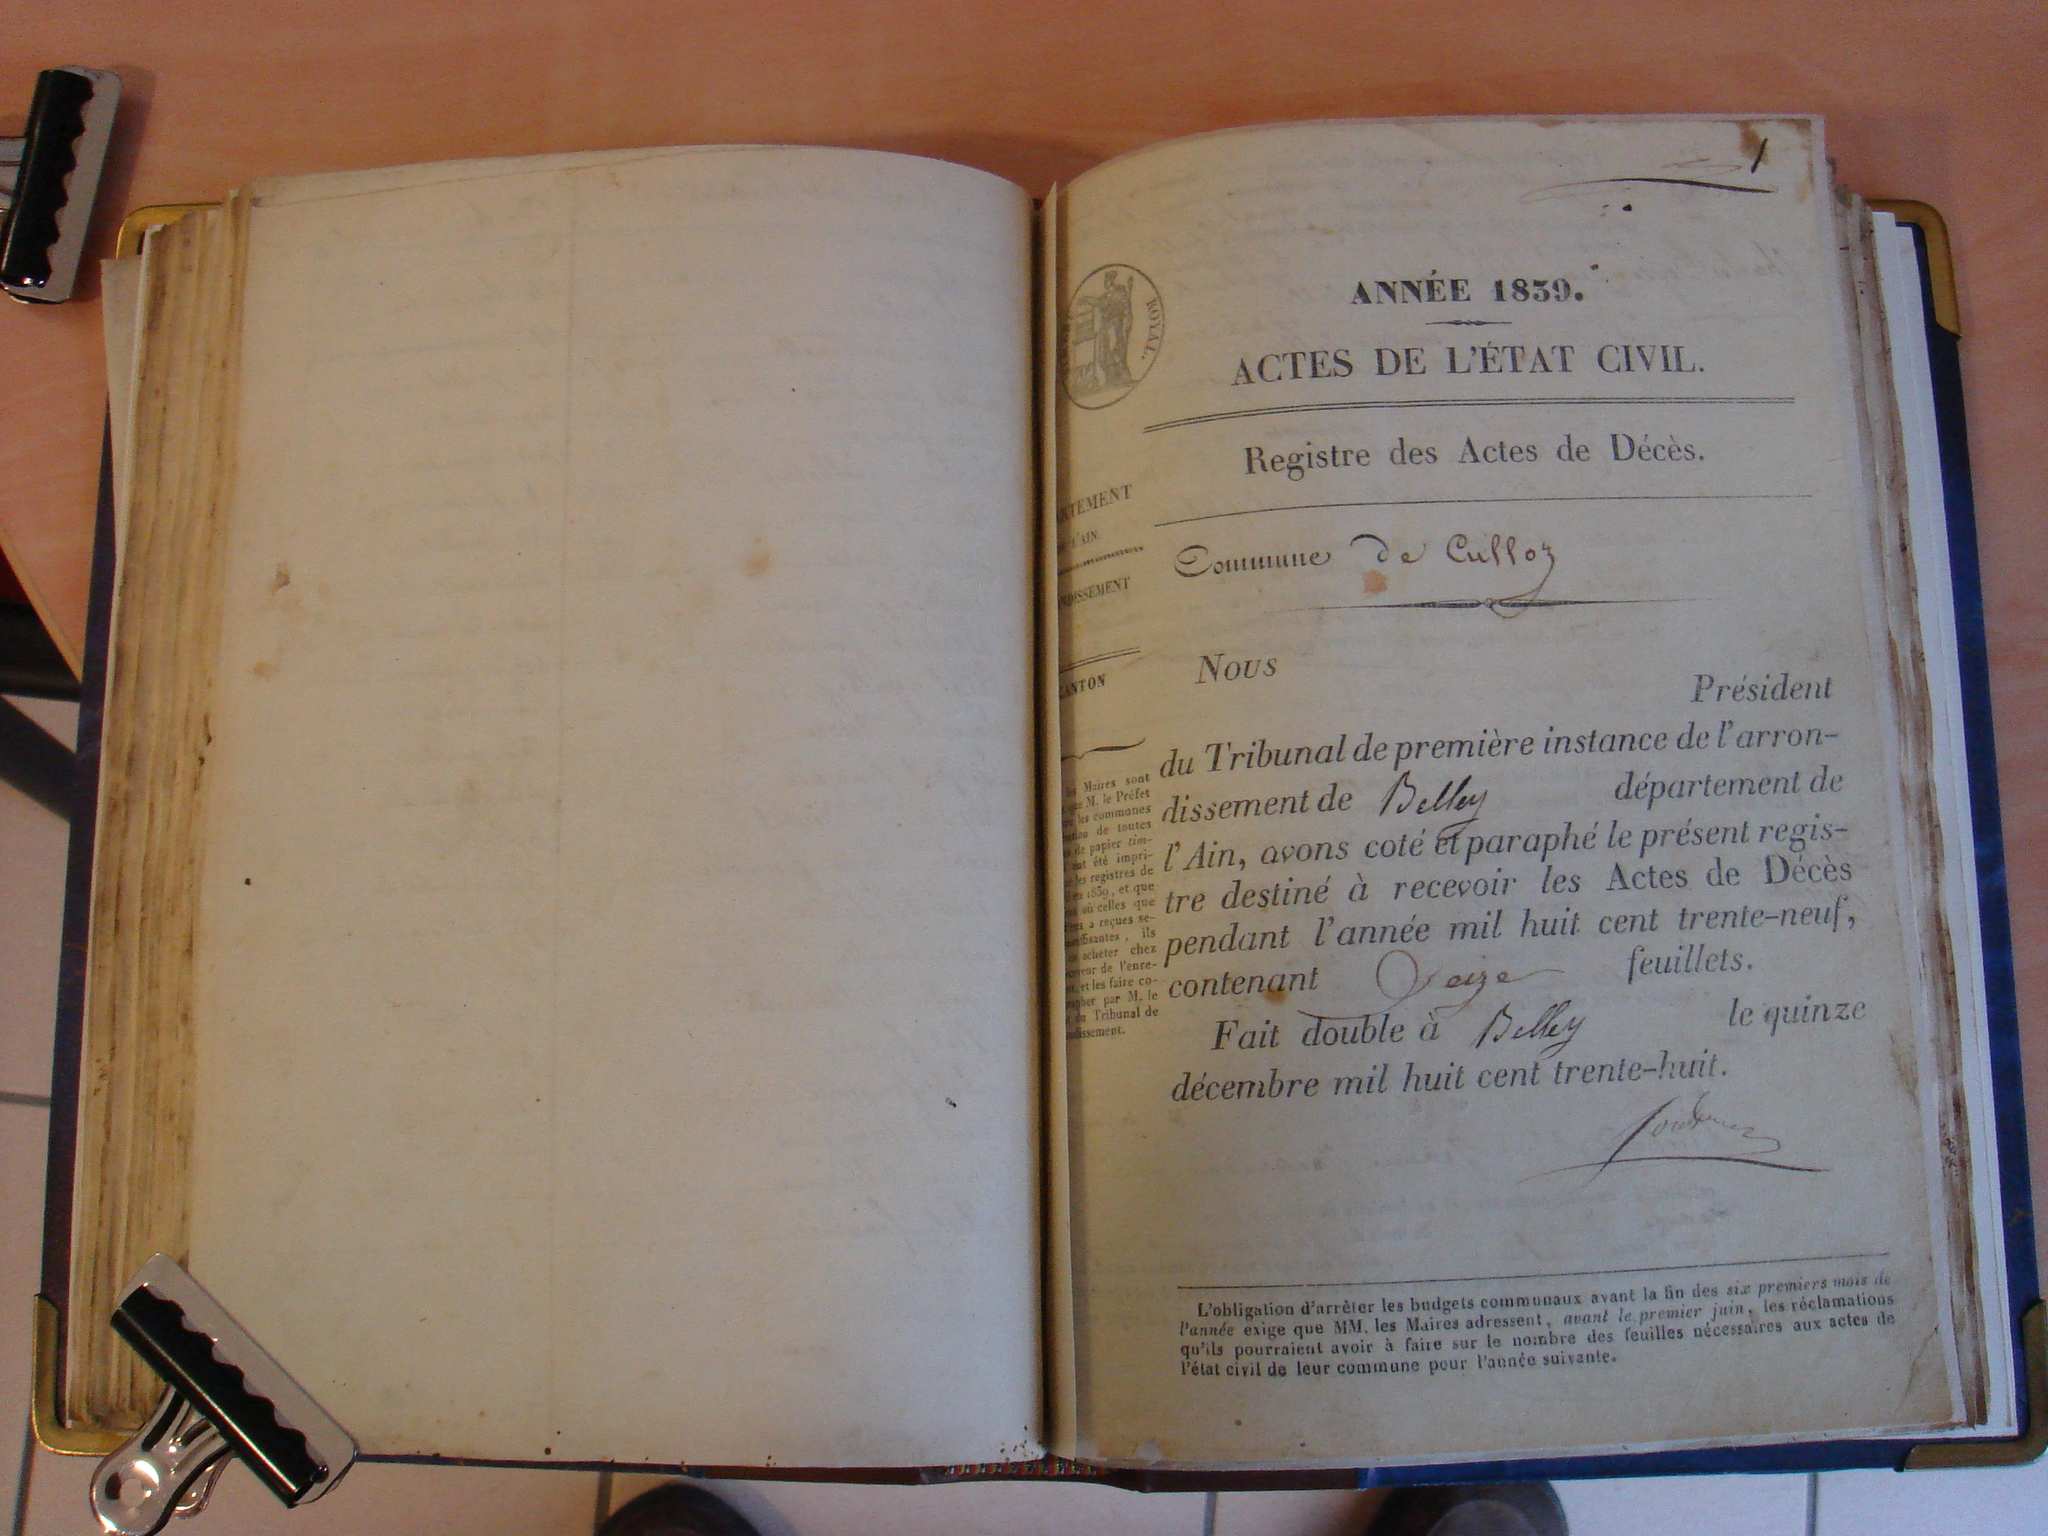 1
ROYAL.
ANNÉE 1839.
ACTES DE L'ÉTAT CIVIL.
Registre des Actes de Décès.
Commune de Culloz
Nous
Président
du Tribunal de première instance de l'arron-
dissement de Belley département de
l'Ain, avons coté et paraphé le présent regis-
tre destiné à recevoir les Actes de Décès
pendant l'année mil huit cent trente-neuf,
contenant Seize feuillets.
Fait double à Belley le quinze
décembre mil huit cent trente-huit.
RTEMENT
L'AIN.
DISSEMENT
CANTON
Maires sont
que M. le Préfet
les communes
de toutes
de papier tim-
été impri-
les registres de
1839, et que
où celles que
a reçues se-
, ils
acheter chez
de l'enre-
, et les faire co-
par M. le
du Tribunal de
L'obligation d'arrêter les budgets communaux avant la fin des six premiers mois de
l'année exige que MM. les Maires adressent, avant le premier juin, les réclamations
qu'ils pourraient avoir à faire sur le nombre des feuilles nécessaires aux actes de
l'état civil de leur commune pour l'année suivante.